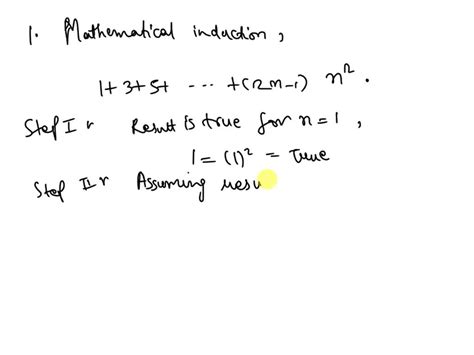 1. Mathematical induction,
1+3+5+ ... +(2n-1) n².
Step I r Result is true for n=1,
1 = (1)² = True
Step II r Assuming resu